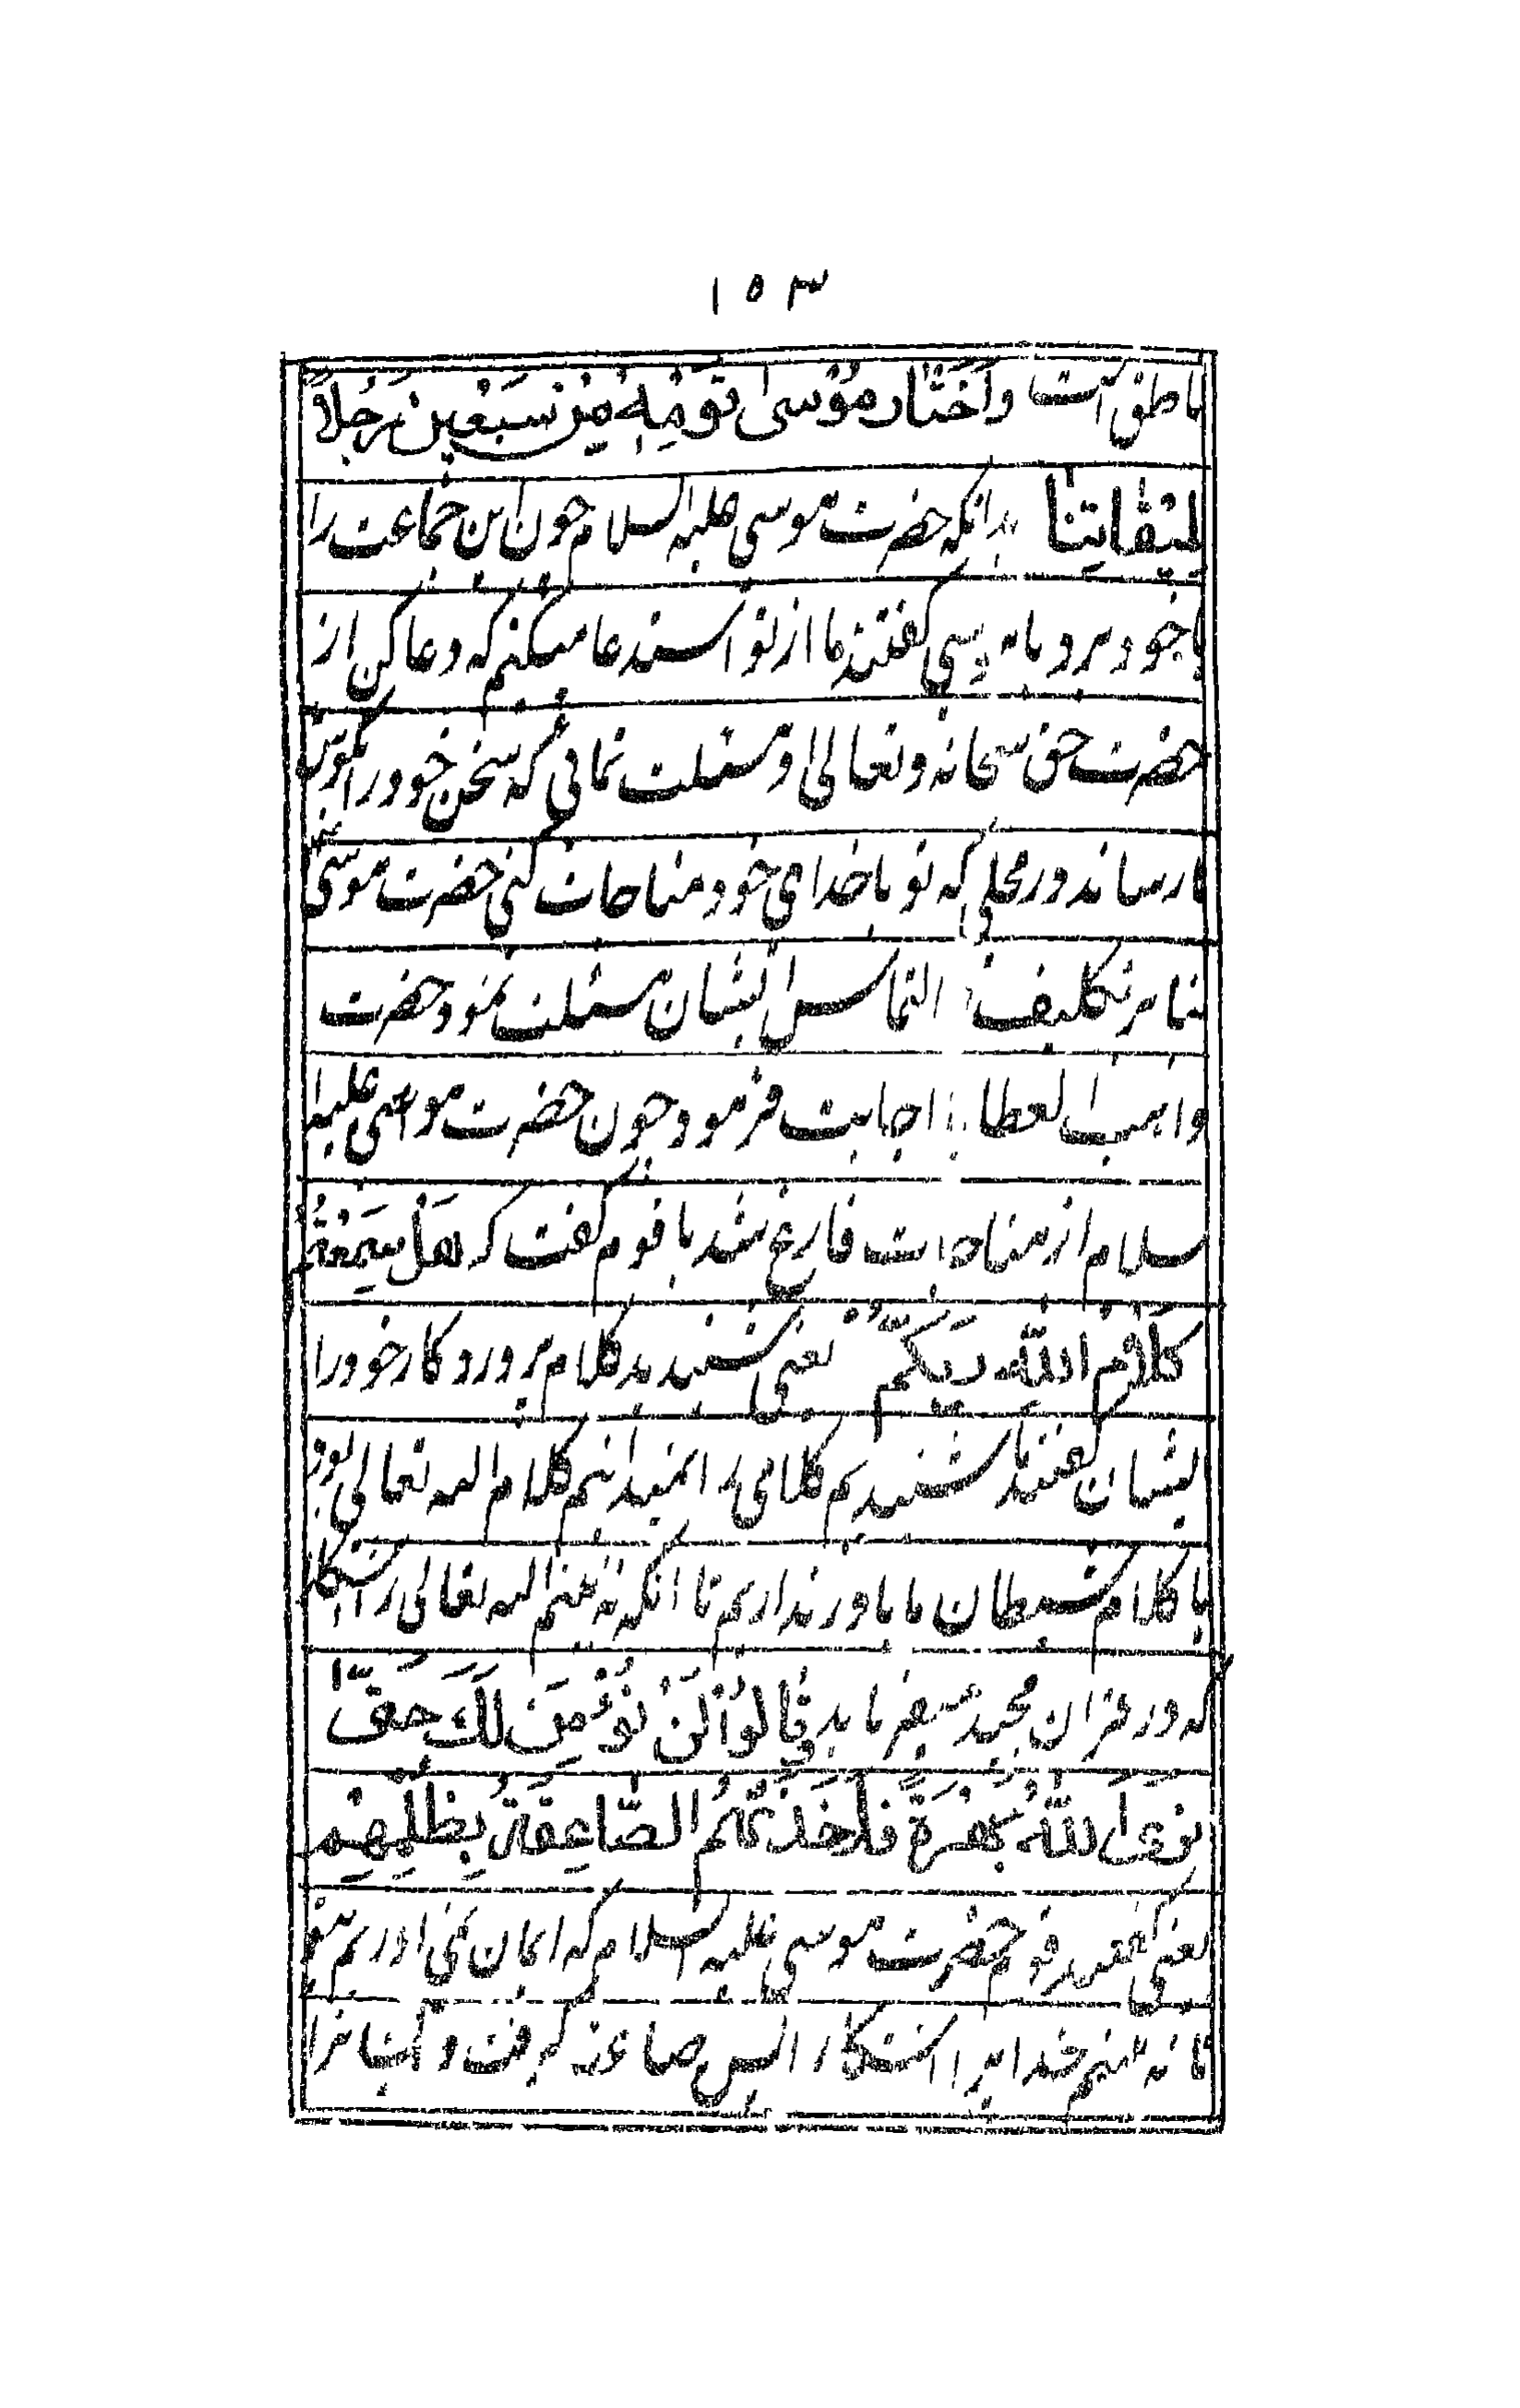 ١٥٣
ناطق است وَاخْتَارَ مُوْسىٰ قَوْمِهٖ مِنْ سَبْعِينَ رَجُلاً
لِمِيْقَاتِنَا بدانکه حضرت موسی علیه السلام چون این جماعت را
با خود برد و مایه پسی گفتند ما از تو استدعا میکنیم که دعا کن از
حضرت حق سبحانه و تعالیٰ و مسئلت نمائی که سخن خود را بگوش
ما رساند در محلی که تو با خدای خود مناجات کنی حضرت موسیٰ
بنابر تکلیف التماس ایشان مسئلت نمود حضرت
واهب العطایا اجابت فرمود چون حضرت موسی علیه
سلام از مناجات فارغ شد با قوم گفت که هَلْ سَمِعْتُمْ
كَلَامَ اللّٰهِ رَبِّكُمْ یعنی شنیدید کلام پروردکار خود را
ایشان گفتند ما شنیدیم کلامی را نمیدانیم کلام الله تعالی بود
یا کلام شیطان ما باور نداریم تا انکه نه بینیم الله تعالی را آشکارا
که در قران مجید میفرماید قَالُوْا لَنْ نُؤْمِنَ لَكَ حَتّٰى
نَرَى اللّٰهَ جَهْرَةً فَاَخَذَتْهُمُ الصَّاعِقَةُ بِظُلْمِهِمْ
یعنی گفتند قوم حضرت موسی علیه السلام که ایمان نمی اوریم بتو
تا نه بینیم خدایرا اشکارا پس صاعقه گرفت و ایشانرا